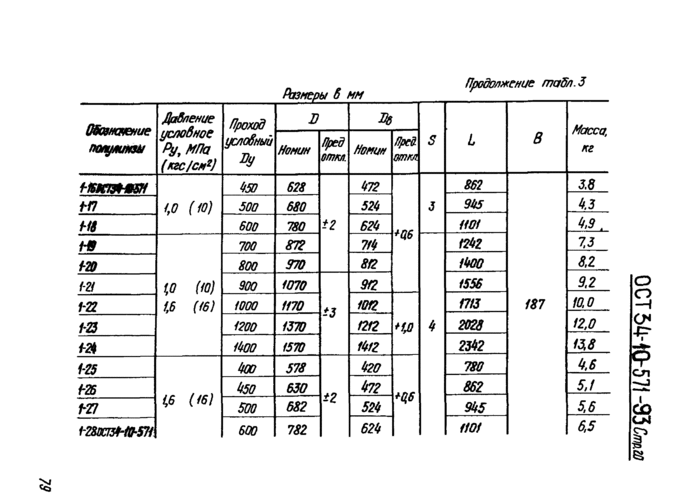 Продолжение табл. 3
Размеры в мм
Обозначение полулинзы | Давление условное Ру, МПа (кгс/см²) | Проход условный Dу | D Номин | D Пред откл. | Dв Номин | Dв Пред откл. | S | L | B | Масса, кг
1-16 ОСТ34-10-571 | 1,0 (10) | 450 | 628 | ±2 | 472 | +0,6 | 3 | 862 | 187 | 3.8
1-17 | 500 | 680 | 524 | 945 | 4,3
1-18 | 600 | 780 | 624 | 1101 | 4,9
1-19 | 1,0 (10) 1,6 (16) | 700 | 872 | 714 | 4 | 1242 | 7,3
1-20 | 800 | 970 | 812 | 1400 | 8,2
1-21 | 900 | 1070 | ±3 | 912 | 1556 | 9,2
1-22 | 1000 | 1170 | 1012 | +1,0 | 1713 | 10,0
1-23 | 1200 | 1370 | 1212 | 2028 | 12,0
1-24 | 1400 | 1570 | 1412 | 2342 | 13,8
1-25 | 1,6 (16) | 400 | 578 | ±2 | 420 | +0,6 | 780 | 4,6
1-26 | 450 | 630 | 472 | 862 | 5,1
1-27 | 500 | 682 | 524 | 945 | 5,6
1-28 ОСТ34-10-571 | 600 | 782 | 624 | 1101 | 6,5
ОСТ 34-10-571-93 Стр.20
79